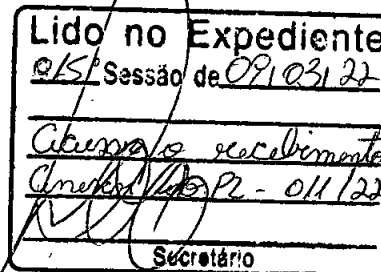 Lido no Expediente
015ª Sessão de 09/03/22
Acusar o recebimento
Anexar ao PL - 011/22
Secretário